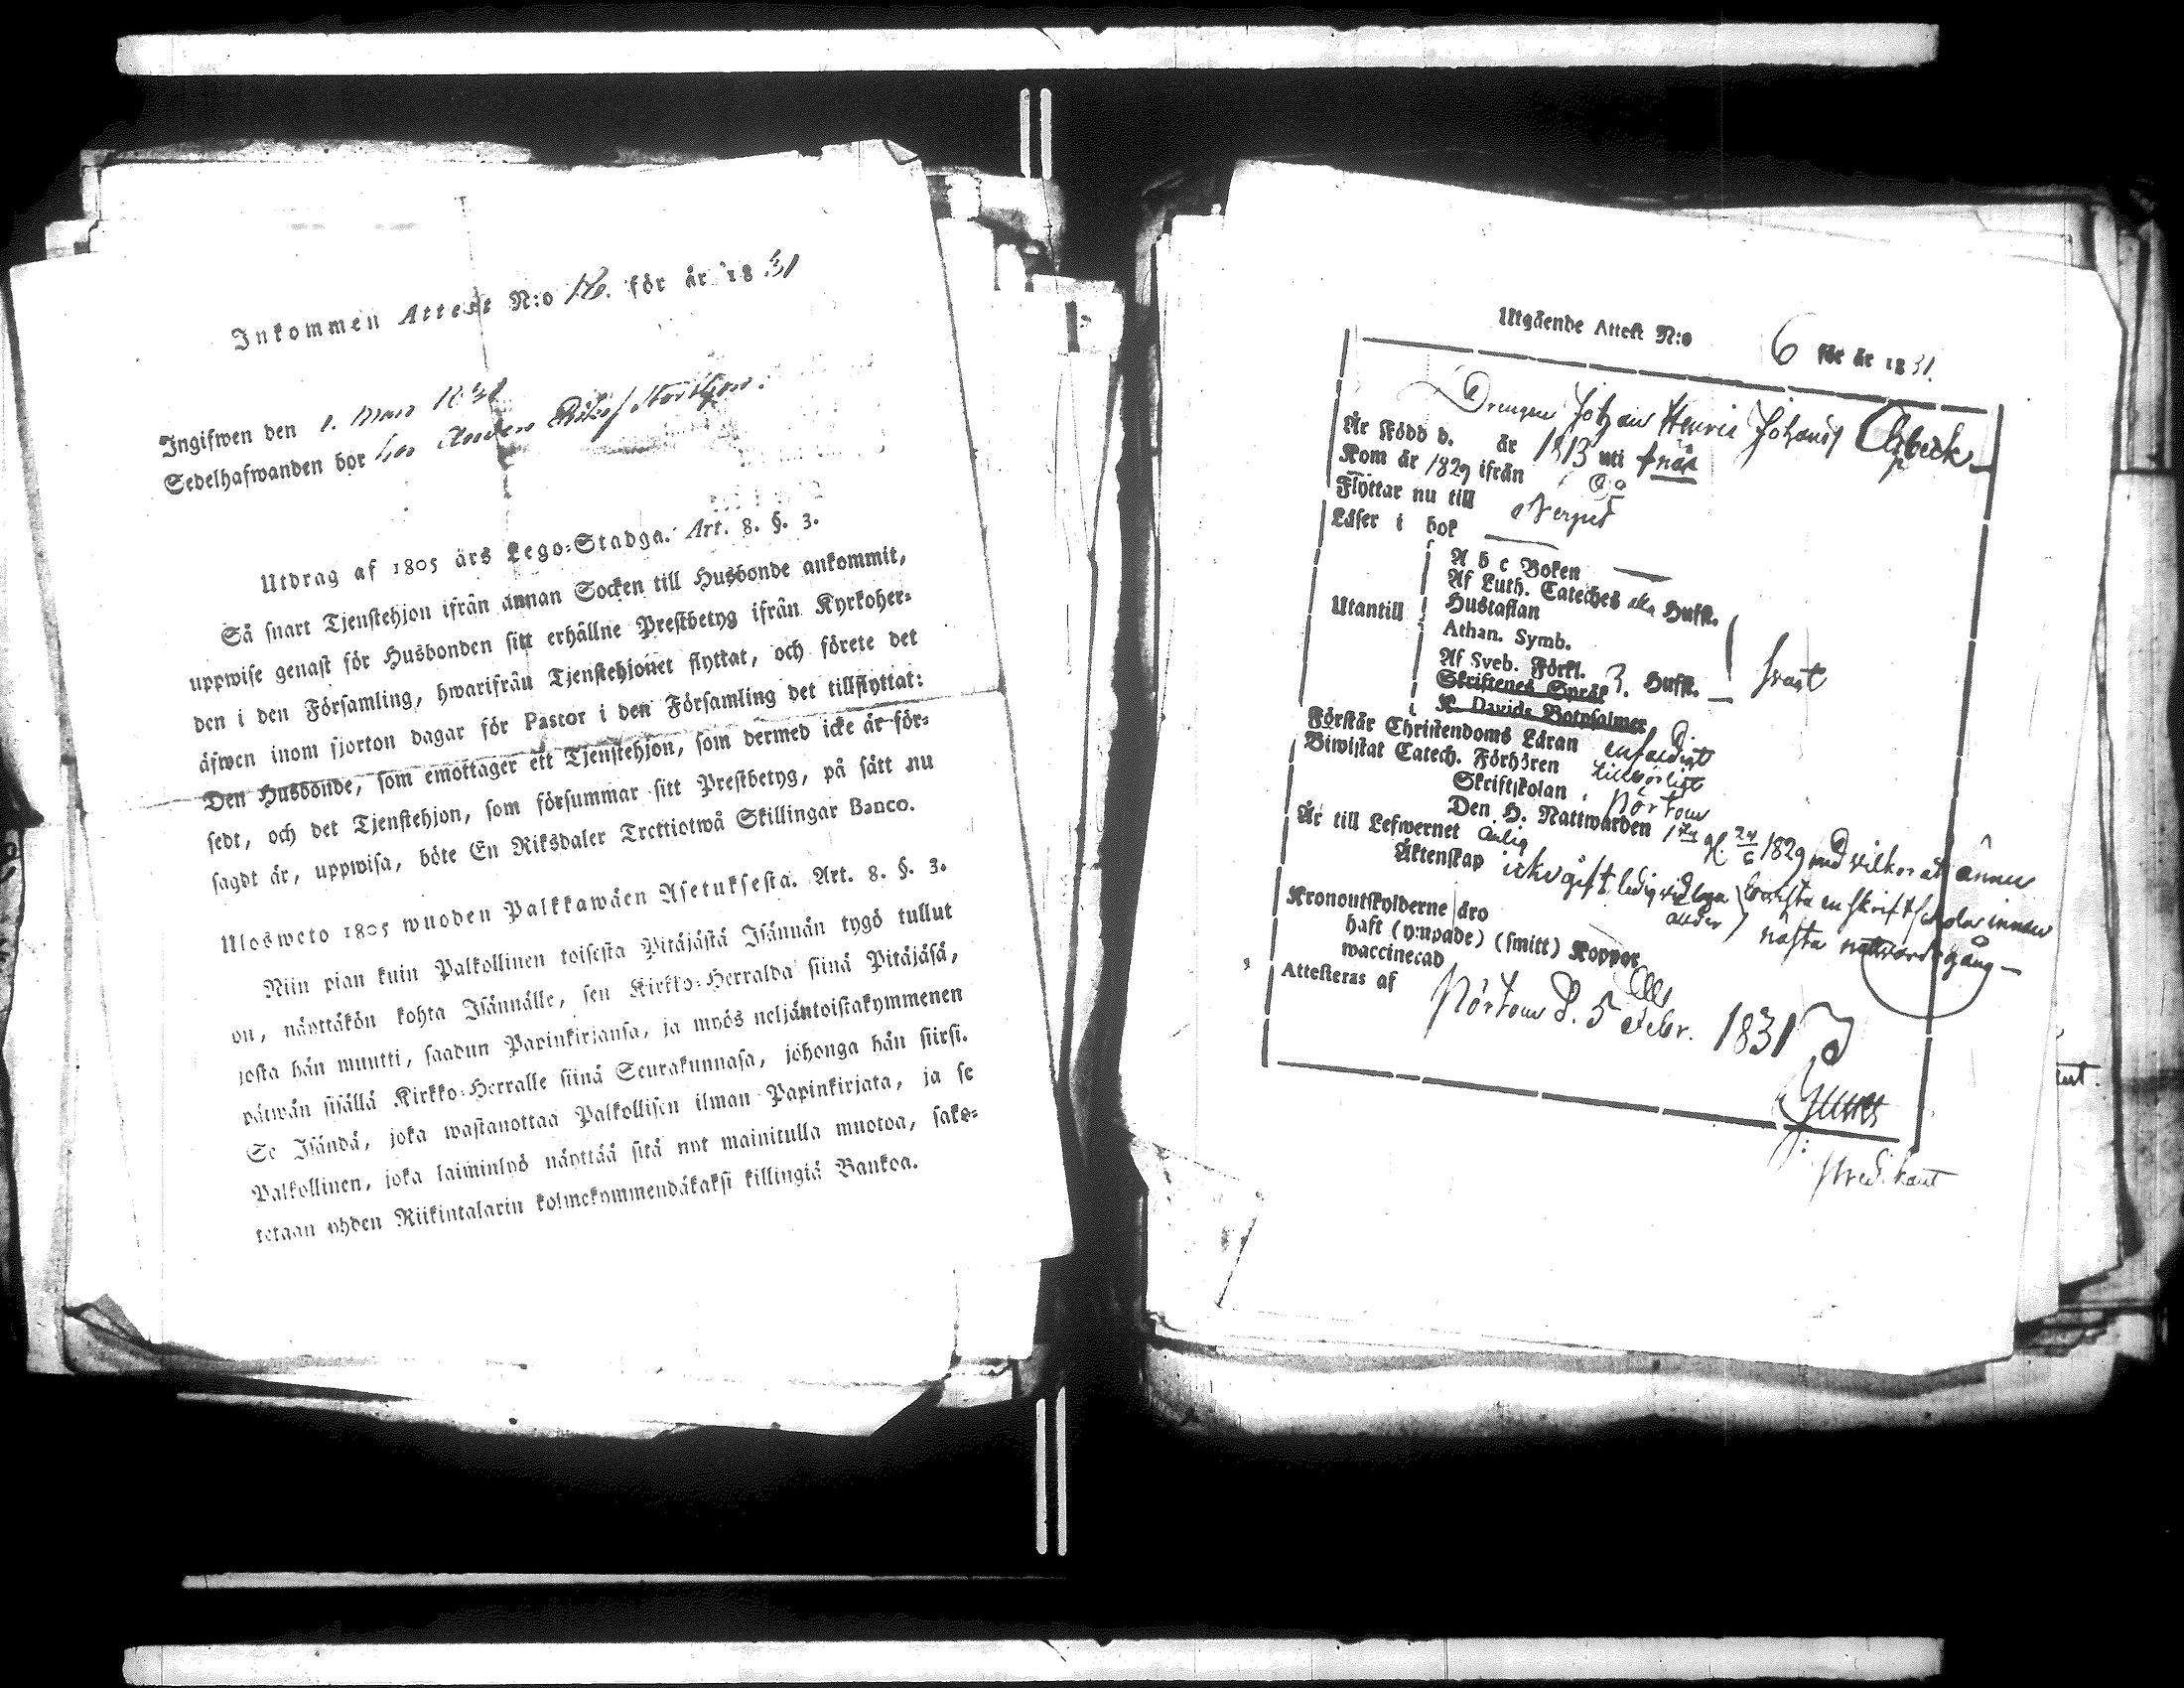 Inkommen Attest N:o 12. för år 1831
Ingifwen den 1. Mars 1831
Sedelhafwanden bor hos
Utdrag af 1805 års Lego-Stadga. Art. 8. §. 3.
Så snart Tjenstehjon ifrån annan Socken till Husbonde ankommit,
uppwise genast för Husbonden sitt erhållne Prestbetyg ifrån Kyrkoher-
den i den Församling, hwarifrån Tjenstehjonet flyttat, och förete det
äfwen inom fjorton dagar för Pastor i den Församling det tillflyttat:
Den Husbonde, som emottager ett Tjenstehjon, som dermed icke är för-
sedt, och det Tjenstehjon, som försummar sitt Prestbetyg, på sätt nu
sagdt är, uppwisa, böte En Riksdaler Trettiotwå Skillingar Banco.
Ulosweto 1805 wuoden Palkkawäen Asetuksesta. Art. 8. §. 3.
Niin pian kuin Palkollinen toisesta Pitäjästä Isännän tygö tullut
on, näyttäkön kohta Isännälle, sen Kirkko-Herralda siinä Pitäjäsä,
josta hän muutti, saadun Papinkirjansa, ja myös neljäntoistakymmenen
päiwän sisällä Kirkko-Herralle siinä Seurakunnasa, johonga hän siirsi.
Se Isändä, joka wastanottaa Palkollisen ilman Papinkirjata, ja se
Palkollinen, joka laiminlyö näyttää sitä nyt mainitulla muotoa, sako-
tetaan yhden Riikintalarin kolmekymmendäkaksi killingiä Bankoa.
Utgående Attest N:o 6 för år 1831.
Drengen Johan Henric Johanss
Är Född d. år 1813 uti
Kom år 1829 ifrån
Flyttar nu till Nerpes
Läser i bok
A b c Boken
Af Luth. Cateches alla Hufst.
Utantill Hustaflan
Athan. Symb.
Af Sveb. Förkl. 3. Hufst. svart
Skriftenes Språk
K. Davids Botpsalmer
Förstår Christendoms Läran enfaldigt
Biwistat Catech. Förhören
Skriftskolan i Pörtom
Den H. Nattwarden 24/6 1829 med vilkor at ännu
Är till Lefwernet ärlig
Äktenskap icke gift, ledig bevista en skriftskola innan
nästa nattvardsgång
Kronoutskylderne äro
haft (ympade) (smitt) Koppor
waccinerad
Attesteras af Pörtom d. 5 Febr. 1831